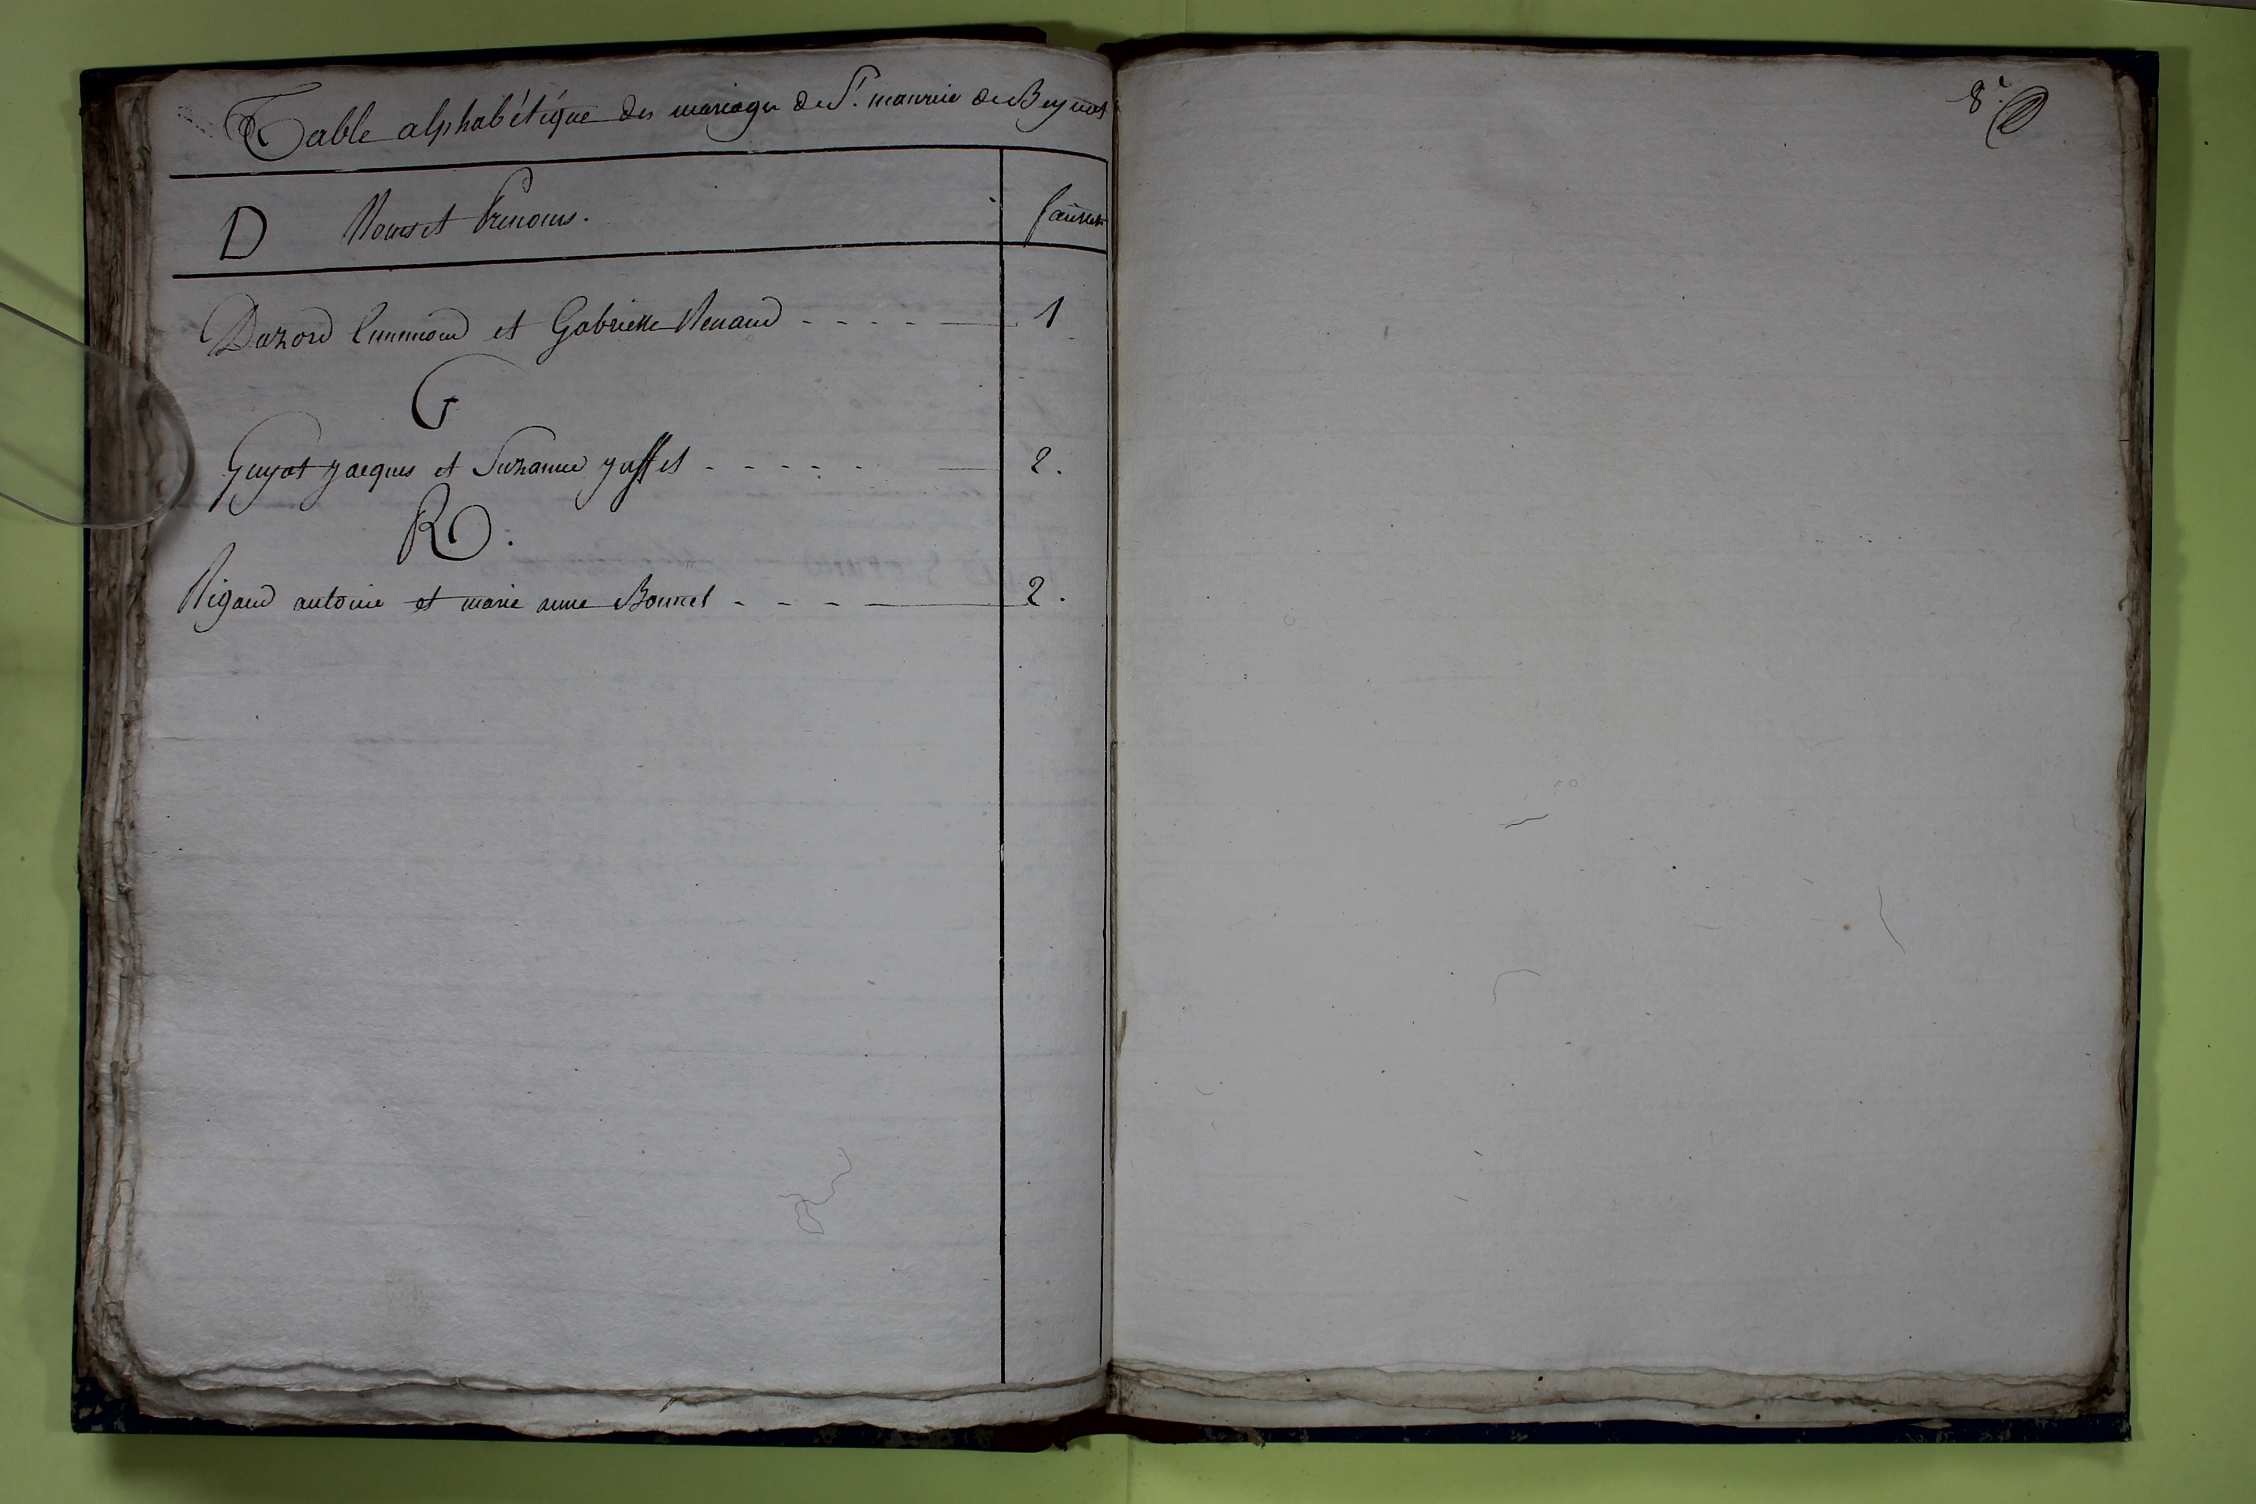 Table alphabétique des mariages de St. maurice de Beynost
D Noms et Prenoms.
Dazord et Gabrielle Renaud - - - - 1
G
Guyot jacques et Suzanne - - - - - 2.
R.
Rigaud antoine et marie anne Bonnet - - - 2.
8